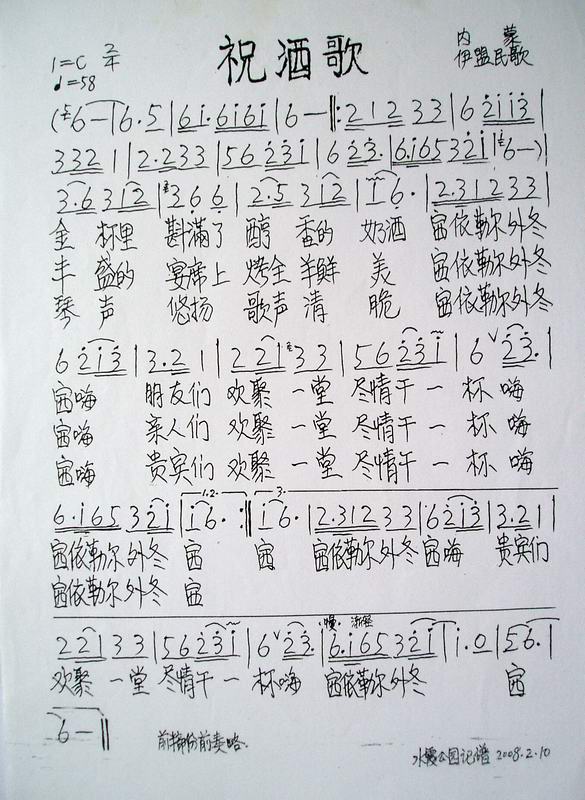 祝酒歌
1=C 2/4
♩=58
内 蒙
伊盟民歌
(6— | 6.5 | 6i.6i6i | 6— ‖: 2 1 2 3 3 | 6 2ii3 |
3321 | 2.233 | 56 23i | 6 23. | 6.i65 32i | 6—) |
3.6 312 | 3 6 6 | 2.5 312 | i 6. | 2.312 33 |
金 杯里 斟满了 醇 香的 奶酒 宙依勒尔外冬
丰 盛的 宴席上 烤全 羊鲜 美 宙依勒尔外冬
琴 声 悠扬 歌声 清 脆 宙依勒尔外冬
6 2i3 | 3.2 1 | 2 21 33 | 56 23i | 6 ∨ 23. |
宙嗨 朋友们 欢聚 一堂 尽情干 一 杯 嗨
宙嗨 亲人们 欢聚 一堂 尽情干 一 杯 嗨
宙嗨 贵宾们 欢聚 一堂 尽情干 一 杯 嗨
1.2. 3.
6.i65 32i | i6. :‖ i6. | 2.312 33 | 6 2i3 | 3.21 |
宙依勒尔外冬 宙 宙 宙依勒尔外冬 宙嗨 贵宾们
宙依勒尔外冬 宙
慢. 渐轻
221 33 | 56 23i | 6 ∨ 23. | 6.i65 32i | i.0 | 56. |
欢聚 一堂 尽情干 一 杯嗨 宙依勒尔外冬 宙
6 — ‖
前奏略.
水霞公园记谱 2008.2.10